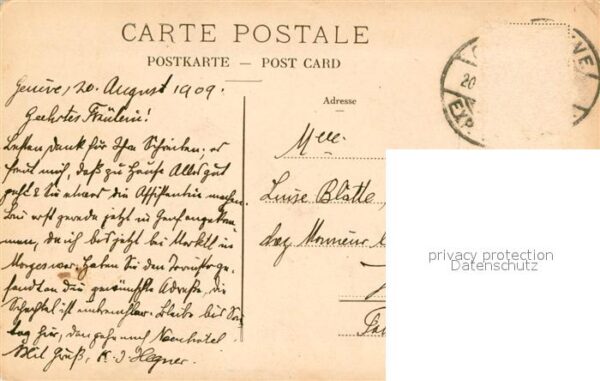 CARTE POSTALE
POSTKARTE — POST CARD
Genève, 20. August 1909.
Geehrtes Fräulein!
Adresse
Besten Dank für Ihr Schreiben. es
freut mich, daß zu Hause Alles gut
geht & Sie etwas die Assistentin machen.
Bin erst gerade jetzt in Genf angekom
men, da ich bis jetzt bei in
Morges war. Haben Sie den ge-
sandt an die gewünschte Adresse, die
Schachtel ist entbehrlich. Bleibe bis Son
tag hier, dann gehe nach
Mit Gruß, K. J. Hegner.
Mlle
Luise Blatte
chez Monsieur
20
EXP
privacy protection
Datenschutz